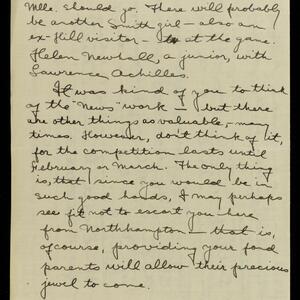 Mlle. should go. There will probably
be another Smith girl - also an
ex-Hill visitor - at the game.
Helen Newhall, a junior, with
Lawrence Achilles.
It was kind of you to think
of the "News" work - but there
are other things as valuable, many
times. However, don't think of it,
for the competition lasts until
February or March. The only thing
is, that since you would be in
such good hands, I may perhaps
see fit not to escort you here
from Northampton - that is,
ofcourse, providing your fond
parents will allow their precious
jewel to come.